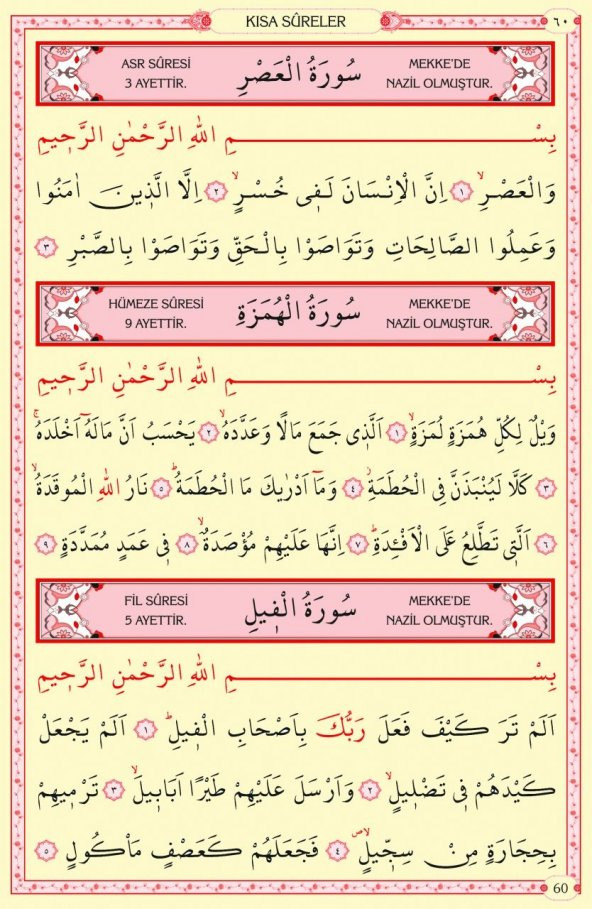 KISA SÛRELER
٦٠
ASR SÛRESİ
3 AYETTİR.
سُورَةُ الْعَصْرِ
MEKKE'DE
NAZİL OLMUŞTUR.
بِسْمِ اللهِ الرَّحْمٰنِ الرَّح۪يمِ
وَالْعَصْرِۙ ﴿١﴾ اِنَّ الْاِنْسَانَ لَف۪ي خُسْرٍۙ ﴿٢﴾ اِلَّا الَّذ۪ينَ اٰمَنُوا
وَعَمِلُوا الصَّالِحَاتِ وَتَوَاصَوْا بِالْحَقِّ وَتَوَاصَوْا بِالصَّبْرِ ﴿٣﴾
HÜMEZE SÛRESİ
9 AYETTİR.
سُورَةُ الْهُمَزَةِ
MEKKE'DE
NAZİL OLMUŞTUR.
بِسْمِ اللهِ الرَّحْمٰنِ الرَّح۪يمِ
وَيْلٌ لِكُلِّ هُمَزَةٍ لُمَزَةٍۙ ﴿١﴾ اَلَّذ۪ي جَمَعَ مَالًا وَعَدَّدَهُۙ ﴿٢﴾ يَحْسَبُ اَنَّ مَالَهُٓ اَخْلَدَهُۚ
﴿٣﴾ كَلَّا لَيُنْبَذَنَّ فِي الْحُطَمَةِۘ ﴿٤﴾ وَمَٓا اَدْرٰيكَ مَا الْحُطَمَةُۜ ﴿٥﴾ نَارُ اللهِ الْمُوقَدَةُۙ
﴿٦﴾ اَلَّت۪ي تَطَّلِعُ عَلَى الْاَفْـِٔدَةِۜ ﴿٧﴾ اِنَّهَا عَلَيْهِمْ مُؤْصَدَةٌۙ ﴿٨﴾ ف۪ي عَمَدٍ مُمَدَّدَةٍ ﴿٩﴾
FİL SÛRESİ
5 AYETTİR.
سُورَةُ الْف۪يلِ
MEKKE'DE
NAZİL OLMUŞTUR.
بِسْمِ اللهِ الرَّحْمٰنِ الرَّح۪يمِ
اَلَمْ تَرَ كَيْفَ فَعَلَ رَبُّكَ بِاَصْحَابِ الْف۪يلِۜ ﴿١﴾ اَلَمْ يَجْعَلْ
كَيْدَهُمْ ف۪ي تَضْل۪يلٍۙ ﴿٢﴾ وَاَرْسَلَ عَلَيْهِمْ طَيْرًا اَبَاب۪يلَۙ ﴿٣﴾ تَرْم۪يهِمْ
بِحِجَارَةٍ مِنْ سِجّ۪يلٍۖ ﴿٤﴾ فَجَعَلَهُمْ كَعَصْفٍ مَأْكُولٍ ﴿٥﴾
60